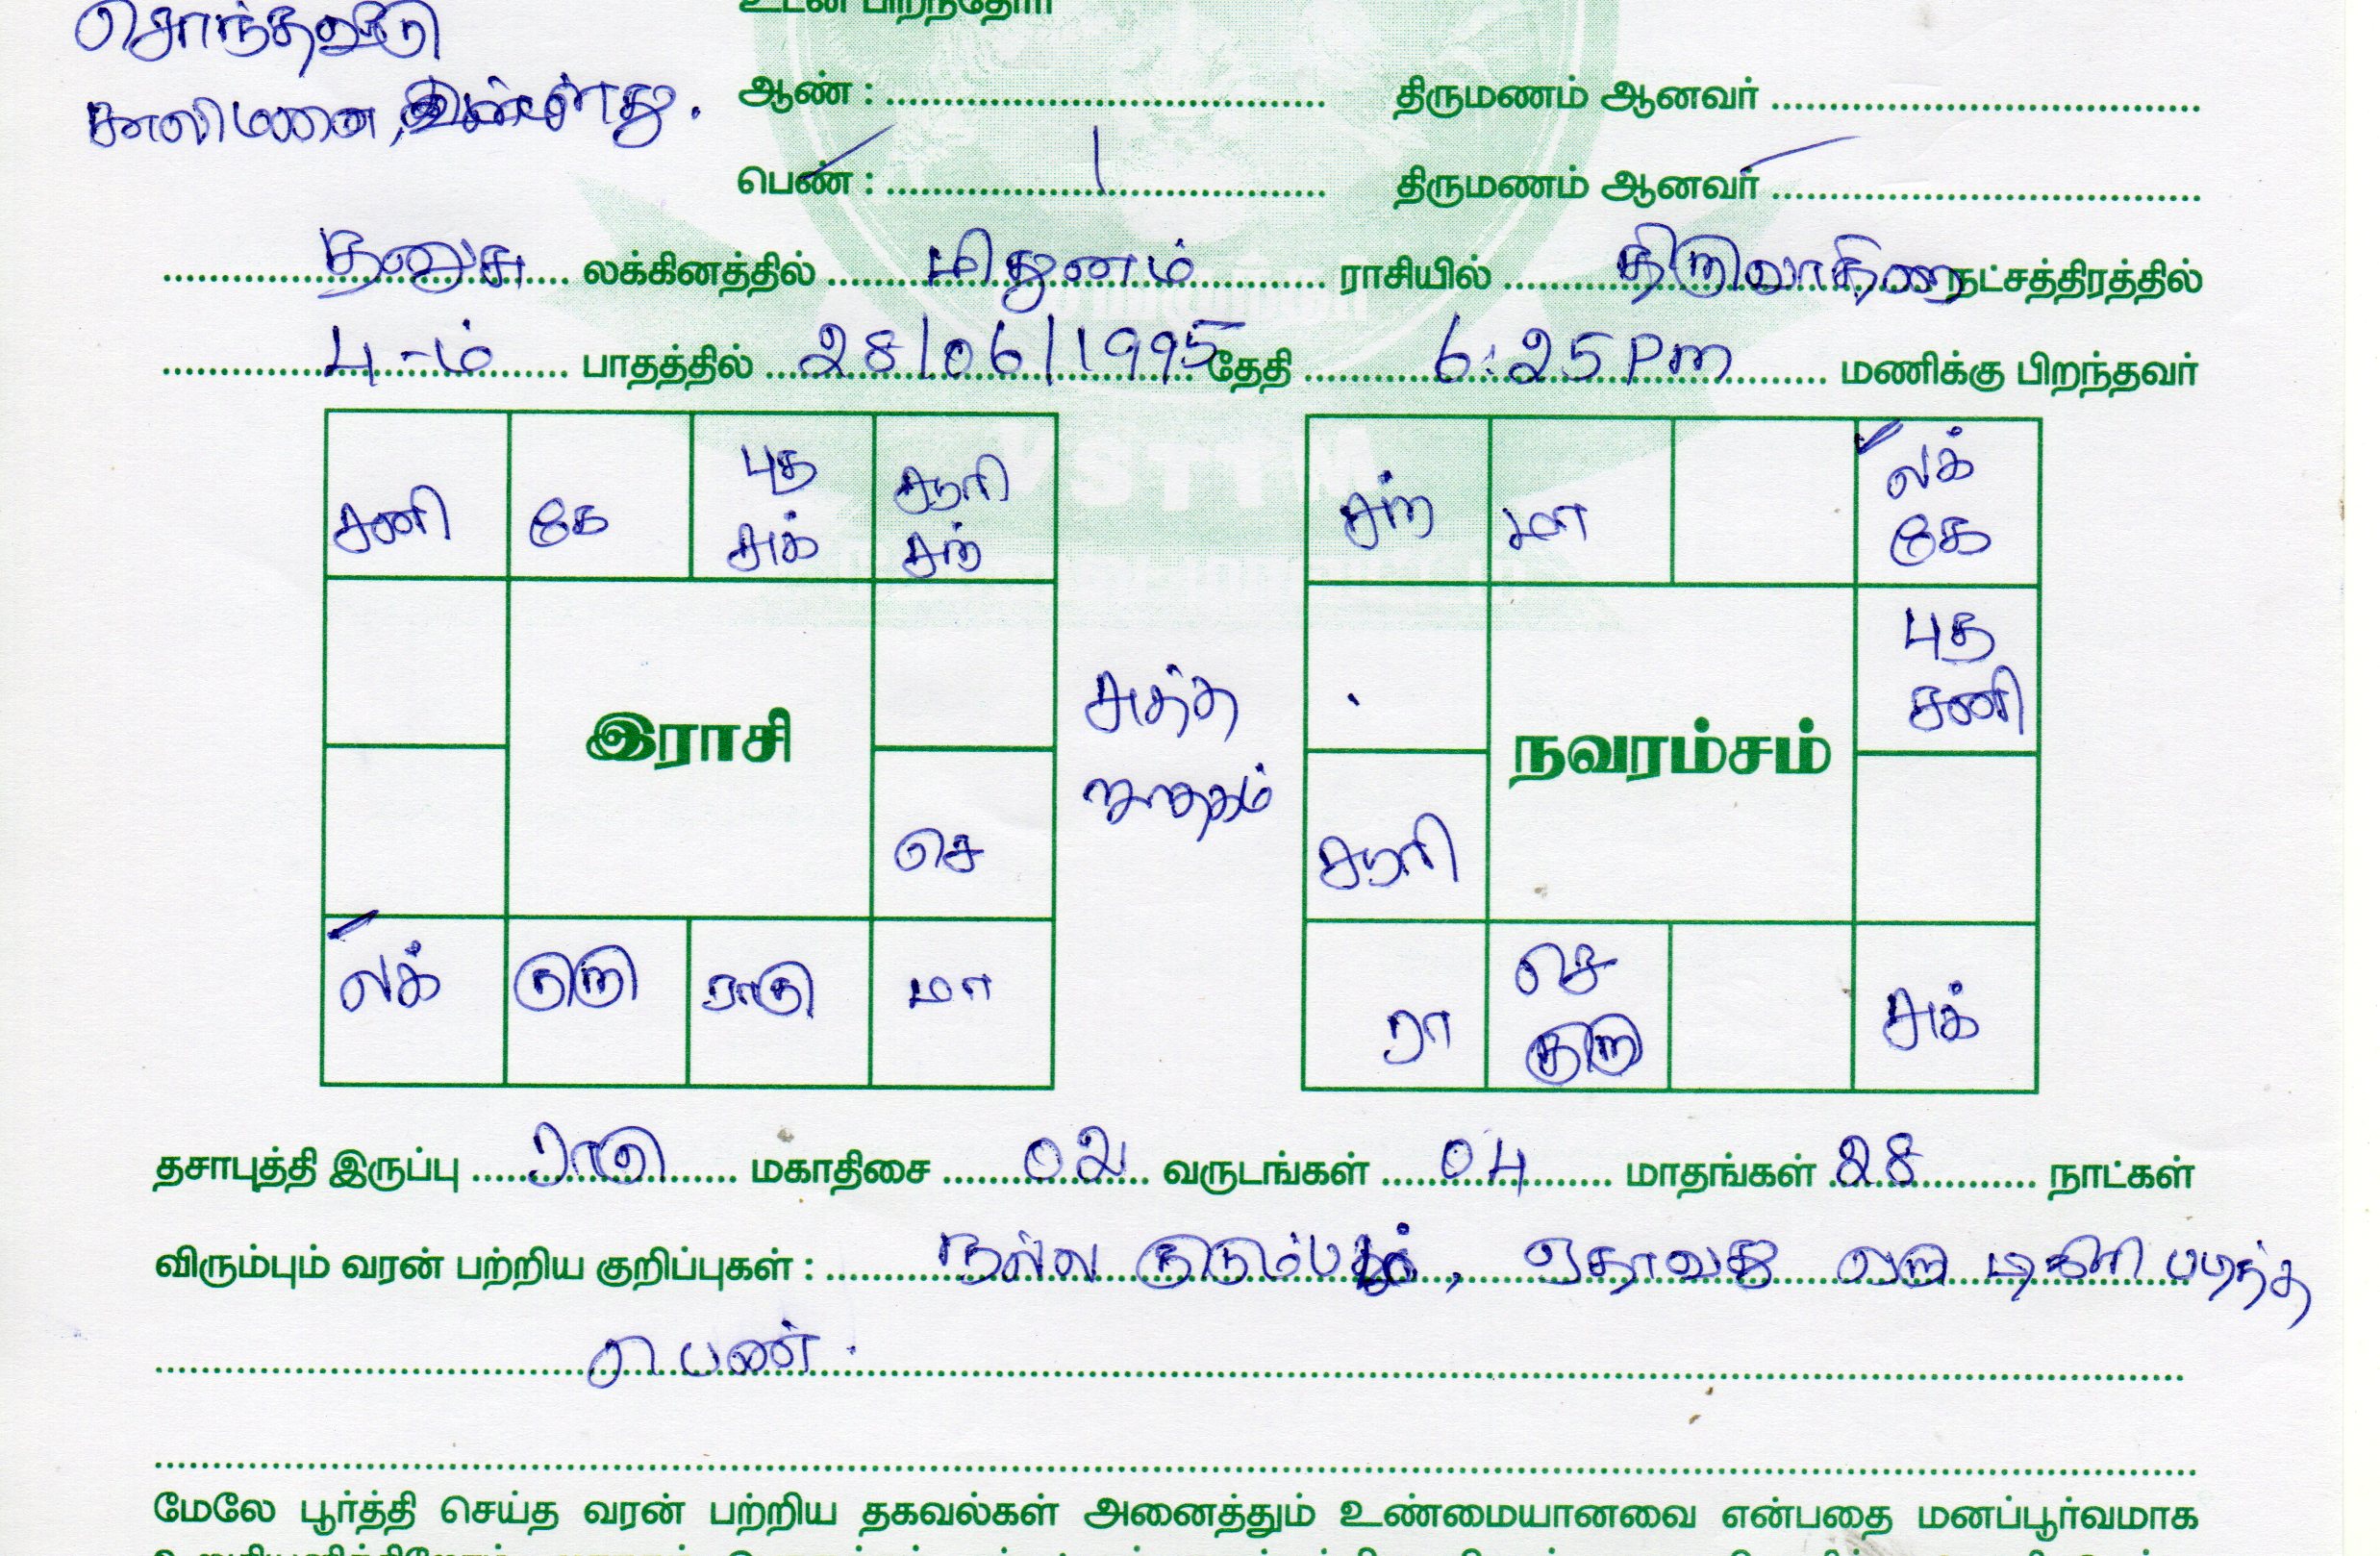 சொந்தவீடு
உடன் பிறந்தோர்
காலிமனை, உள்ளது.
ஆண் : ........ திருமணம் ஆனவர் ........
பெண் : 1 திருமணம் ஆனவர் ........
தனுசு லக்கினத்தில் மிதுனம் ராசியில் திருவாதிரை நட்சத்திரத்தில்
4-ம் பாதத்தில் 28/06/1995 தேதி 6:25 Pm மணிக்கு பிறந்தவர்
சனி கே புத சுக் சூரி சந்
இராசி
செ
லக் குரு ராகு மா
சுத்த
ஜாதகம்
சந் மா லக் கே
புத சனி
நவரம்சம்
சூரி
ரா செ குரு சுக்
தசாபுத்தி இருப்பு ராகு மகாதிசை 02 வருடங்கள் 04 மாதங்கள் 28 நாட்கள்
விரும்பும் வரன் பற்றிய குறிப்புகள் : நல்ல குடும்பம், ஏதாவது ஒரு டிகிரி படித்த
பெண்.
மேலே பூர்த்தி செய்த வரன் பற்றிய தகவல்கள் அனைத்தும் உண்மையானவை என்பதை மனப்பூர்வமாக